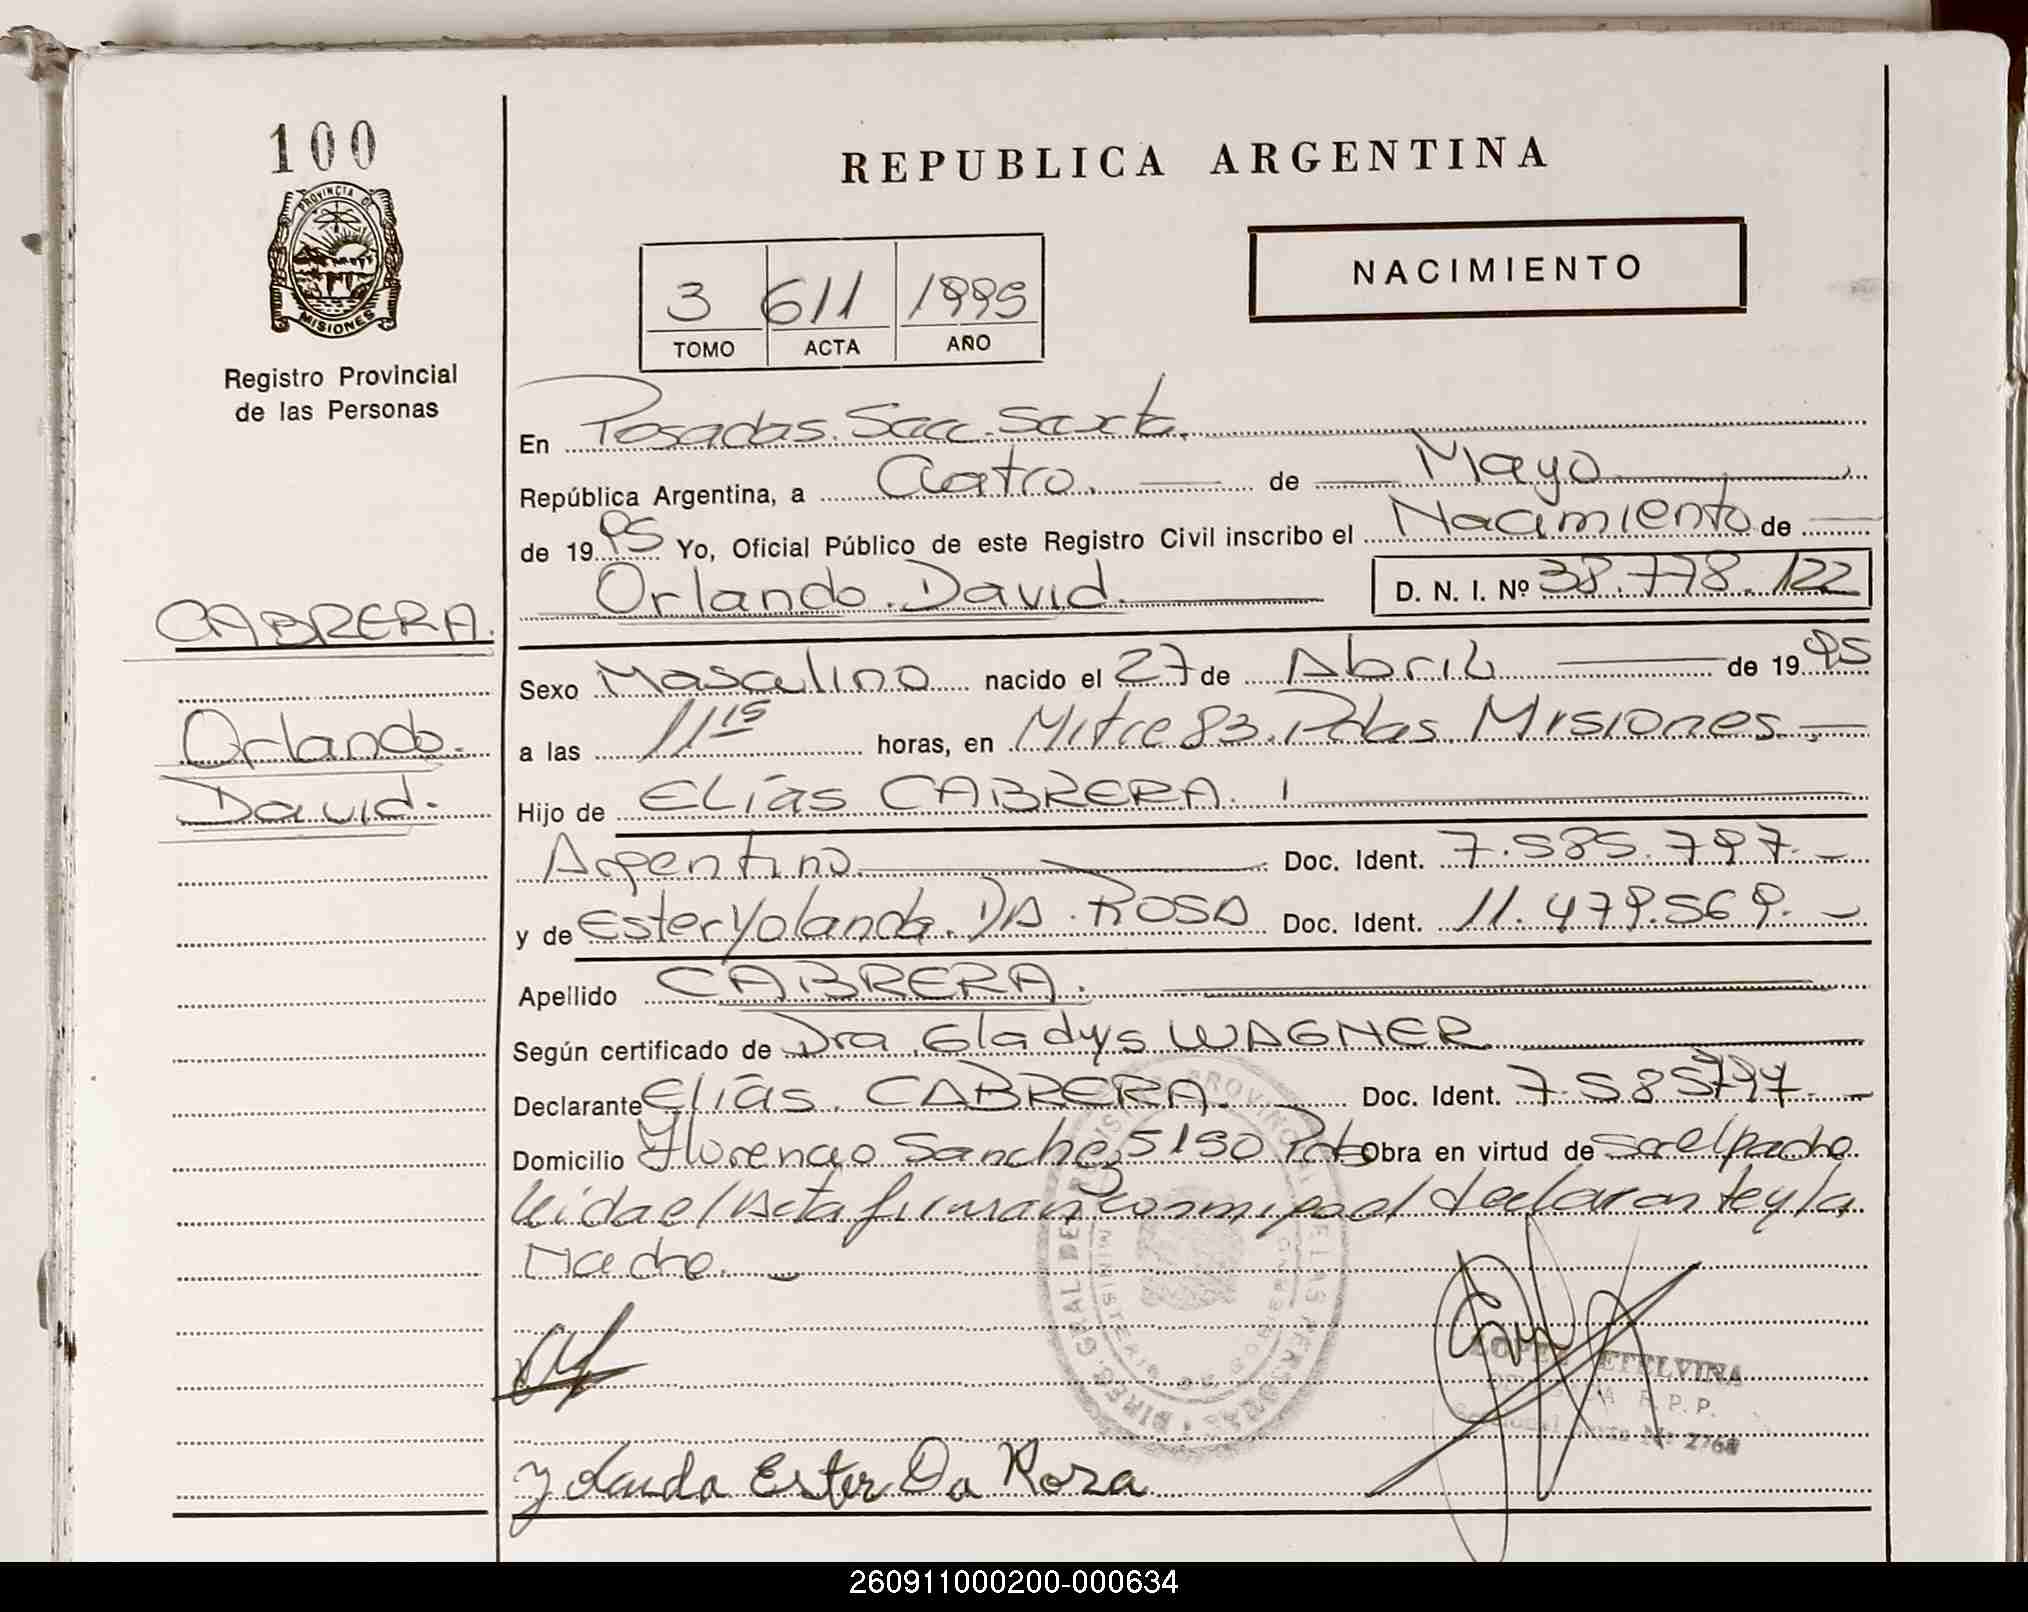 100
PROVINCIA DE
MISIONES
Registro Provincial
de las Personas
REPUBLICA ARGENTINA
NACIMIENTO
3 611 1995
TOMO ACTA AÑO
En Posadas. Secc. Sexta.
República Argentina, a Cuatro. de Mayo
de 1995 Yo, Oficial Público de este Registro Civil inscribo el Nacimiento de
Orlando. David. D. N. I. Nº 38.778.122
CABRERA.
Orlando.
David.
Sexo Masculino nacido el 27 de Abril de 1995
a las 11 15 horas, en Mitre 83. Pdas Misiones.
Hijo de Elías CABRERA.
Argentino Doc. Ident. 7.585.797.
y de Ester Yolanda. DA ROSA Doc. Ident. 11.479.569.
Apellido CABRERA.
Según certificado de Dra Gladys WAGNER
Declarante Elías. CABRERA. Doc. Ident. 7.585797.
Domicilio Florencio Sanchez 5190 Obra en virtud de
Leida el Acta firman conmigo el declarante y la
Madre.
DIREC. GRAL DE REGISTRO PROVINCIAL DE LAS PERSONAS
MINISTERIO DE GOBIERNO
LOPEZ ETELVINA
R. P. P.
Yolanda Ester Da Roza
260911000200-000634